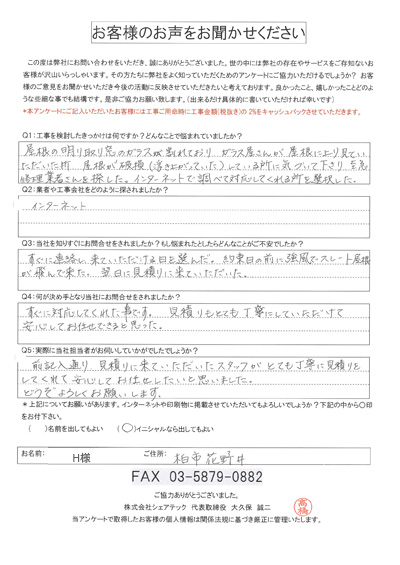 お客様のお声をお聞かせください
この度は弊社にお問い合わせをいただき、誠にありがとうございました。世の中には弊社の存在やサービスをご存知ないお
客様が沢山いらっしゃいます。その方たちに弊社をよく知っていただくためのアンケートにご協力いただけるでしょうか? お客
様のご意見をお聞かせいただき今後の活動に反映させていただきたいと考えております。良かったこと、嬉しかったことどのよ
うな些細な事でも結構です。是非ご協力お願い致します。(出来るだけ具体的に書いていただければ幸いです)
*本アンケートにご記入いただいたお客様には工事ご用命時に工事金額(税抜き)の2%をキャッシュバックさせていただきます。
Q1:工事を検討したきっかけは何ですか?どんなことで悩まれていましたか?
屋根の明り取り窓のガラスが割れており ガラス屋さんが屋根に上り見てい
ただいた所 屋根が破損(浮き上がっていた)している所に気づいて下さり
修理業者さんを探した。インターネットで調べて対応してくれる所を選択した。
Q2:業者や工事会社をどのように探されましたか?
インターネット
Q3:当社を知りすぐにお問合せをされましたか?もし悩まれたとしたらどんなことがご不安でしたか?
すぐに連絡し来ていただける日を選んだ。約束日の前に強風でスレート屋根
が飛んで来た。翌日に見積りに来ていただいた。
Q4:何が決め手となり当社にお問合せをされましたか?
すぐに対応してくれた事です。見積りもとても丁寧にしていただけて
安心してお任せできると思った。
Q5:実際に当社担当者がお伺いしていかがでしたでしょうか?
前記入通り 見積りに来ていただいたスタッフがとても丁寧に見積りを
してくれて安心してお任せしたいと思いました。
どうぞよろしくお願いします。
*上記についてお願いがあります。インターネットや印刷物に掲載させていただいてもよろしいでしょうか?下記の中から○印
をお付下さい。
( )名前を出してもよい (○)イニシャルなら出してもよい
お名前: H様 ご住所: 柏市花野井
FAX 03-5879-0882
ご協力ありがとうございました。
株式会社シェアテック 代表取締役 大久保 誠二
高橋
当アンケートで取得したお客様の個人情報は関係法規に基づき厳正に管理いたします。